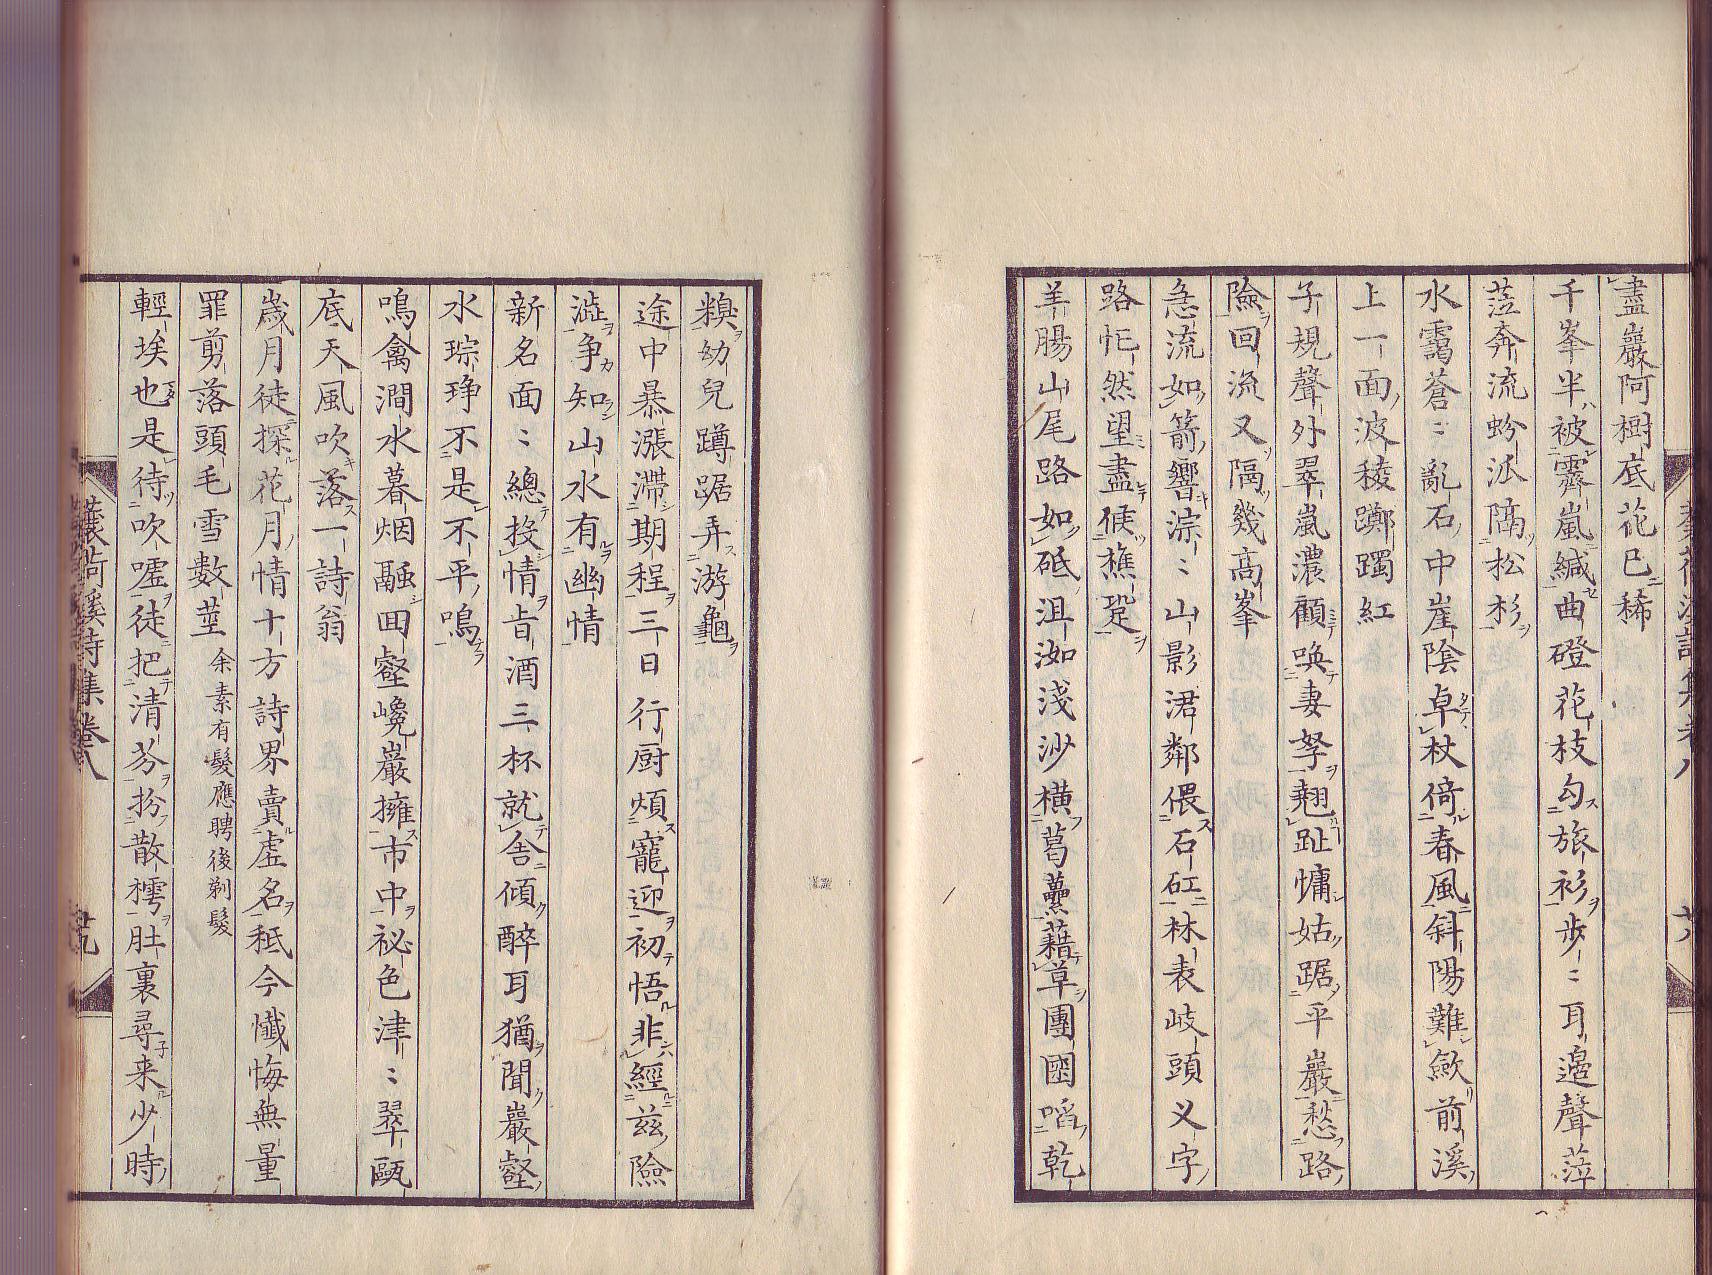 盡巖阿樹底花已稀
千峯半被霽嵐緘曲磴花枝勾旅衫步〻耳邊聲
奔流蚡泒隔松杉
水靄蒼〻亂石中崖陰卓杖倚春風斜陽難歛前溪
上一面波稜躑躅紅
子規聲外翠嵐濃顧喚妻孥翹趾慵姑踞平巖愁路
險回流又隔幾高峯
急流如箭響淙〻山影涒鄰偎石矼林表岐頭义字
路怇然望盡候樵跫
羊腸山尾路如砥沮洳淺沙橫葛虆藉草團圞啗乾
糗幼兒蹲踞弄游龜
途中暴漲滯期程三日行厨煩寵迎初悟非經茲險
澁争知山水有幽情
新名面〻總投情旨酒三杯就舍傾醉耳猶聞巖壑
水琮琤不是不平鳴
鳴禽澗水暮烟融回壑巉巖擁市中祕色津〻翠甌
底天風吹落一詩翁
歲月徒探花月情十方詩界賣虛名秖今懺悔無量
罪剪落頭毛雪數莖 余素有髮應聘後剃髮
輕埃也是待吹噓徒把清芬扮散樗肚裏尋来少時
荷溪詩集卷八 廿九